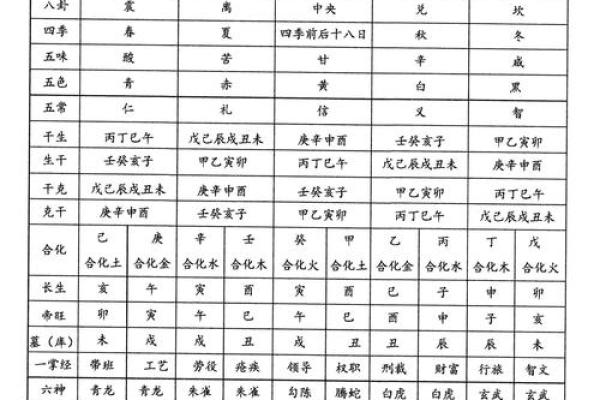 八卦 震 离 中央 兑 坎
四季 春 夏 四季前后十八日 秋 冬
五味 酸 苦 甘 辛 咸
五色 青 赤 黄 白 黑
五常 仁 礼 信 义 智
干生 丙丁巳午 戊己辰戌丑未 庚辛申酉 壬癸亥子 甲乙寅卯
生干 壬癸亥子 甲乙寅卯 丙丁巳午 戊己辰戌丑未 庚辛申酉
干克 戊己辰戌丑未 庚辛申酉 壬癸亥子 甲乙寅卯 丙丁巳午
克干 庚辛申酉 壬癸亥子 甲乙寅卯 丙丁巳午 戊己辰戌丑未
合化 己 庚 辛 壬 癸 甲 乙 丙 丁 戊
合化土 合化金 合化水 合化木 合化火 合化土 合化金 合化水 合化木 合化火
长生 亥 午 寅 酉 寅 酉 巳 子 申 卯
帝旺 卯 寅 午 巳 午 巳 酉 申 子 亥
墓（库） 未 戌 戌 丑 戌 丑 丑 辰 辰 未
一掌经 带班 工艺 劳役 疮疾 领导 权职 刑裁 财富 行旅 智文
六神 青龙 青龙 朱雀 朱雀 勾陈 腾蛇 白虎 白虎 玄武 玄武